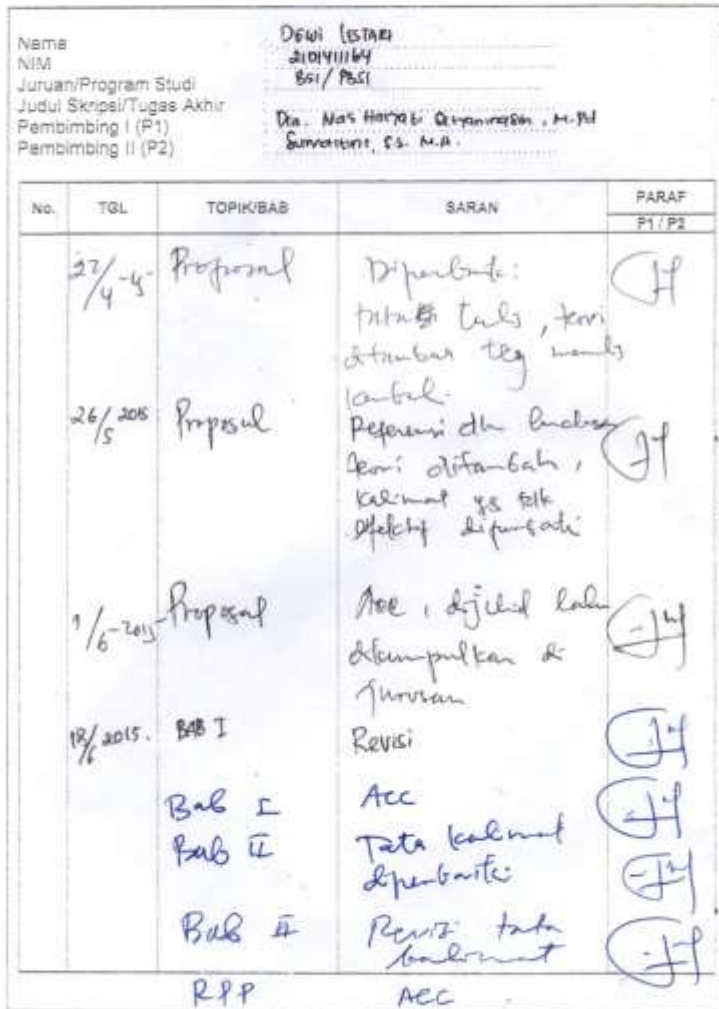 Nama : DEWI LESTARI
NIM : 2101411164
Juruan/Program Studi : BSI / PBSI
Judul Skripsi/Tugas Akhir :
Pembimbing I (P1) : Dra. Nas Haryati , M.Pd
Pembimbing II (P2) : Sumartini, SS. M.A.
No. TGL TOPIK/BAB SARAN PARAF
P1 / P2
27/4-15- Proposal Diperbaiki:
tata tulis, teori
ditambah ttg menulis
26/5 2015 Proposal Referensi dlm landasan
teori ditambah,
kalimat yg tdk
efektif diperbaiki
1/6-2015- Proposal Acc, dijilid lalu
dikumpulkan di
jurusan
18/6 2015. BAB I Revisi
Bab I Acc
Bab II Tata kalimat
diperbaiki
Bab II Revisi tata
kalimat
RPP ACC